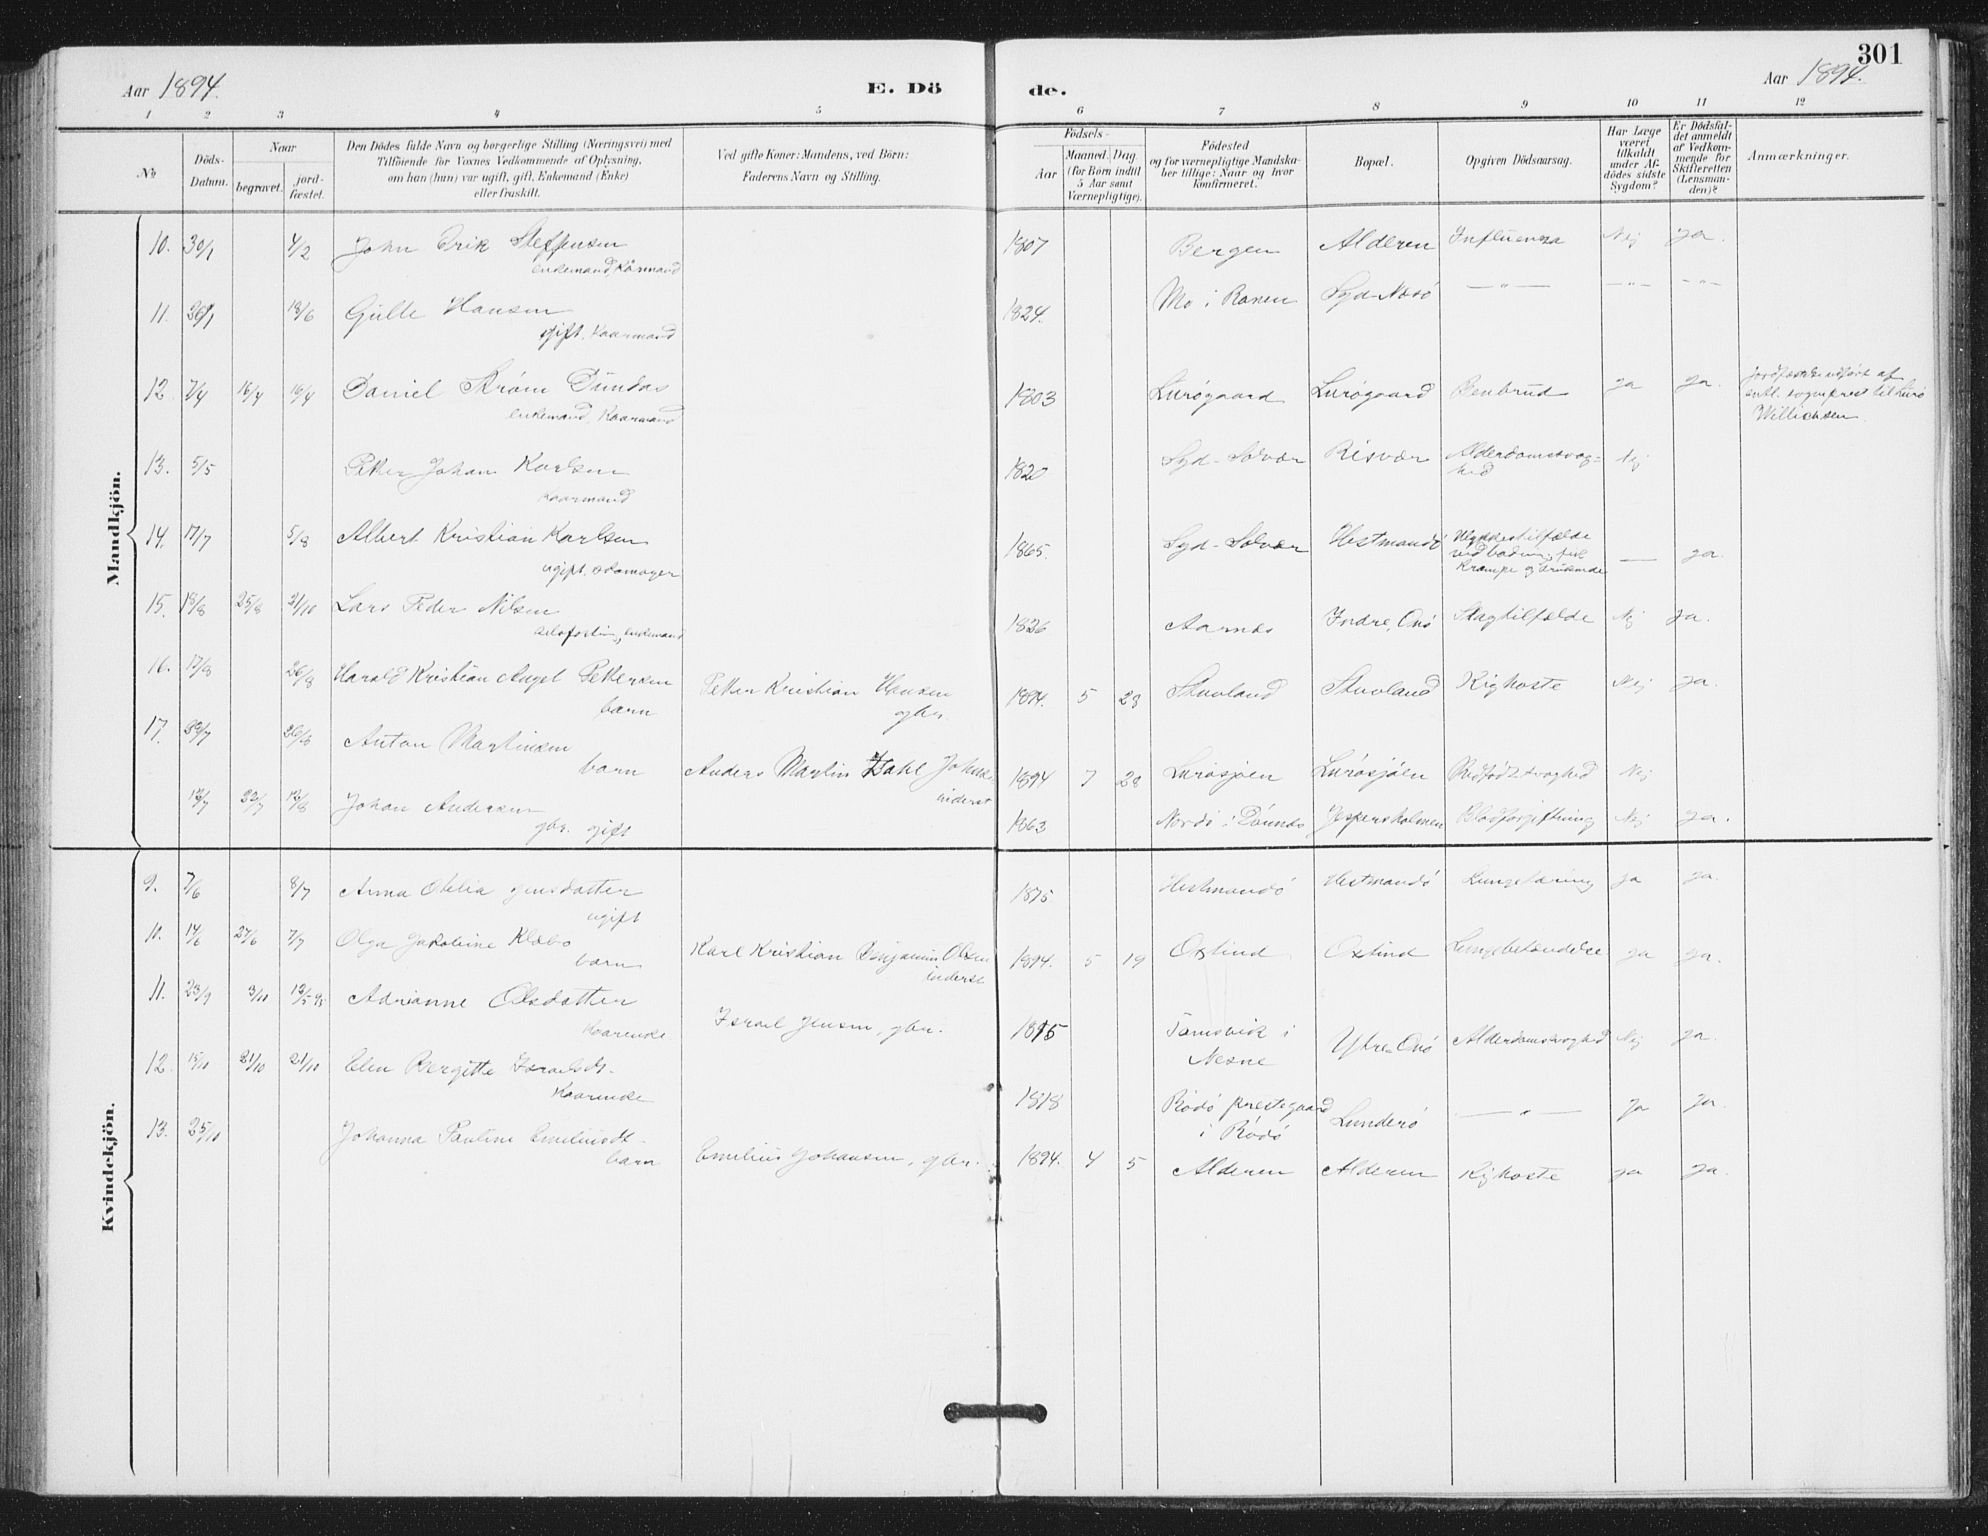 301
Aar 1894.
E. Dö
de.
Aar 1894.
1 2 3 4 5 6 7 8 9 10 11 12
No
Döds-Datum.
Naar
begravet.
jord-fæstet.
Den Dödes fulde Navn og borgerlige Stilling (Næringsvei) med
Tilföiende for Voxnes Vedkommende af Oplysning,
om han (hun) var ugift, gift, Enkemand (Enke)
eller fraskilt.
Ved gifte Koner: Mandens, ved Börn:
Faderens Navn og Stilling.
Födsels-
Aar
Maaned. Dag.
(for Børn indtil
5 Aar samt
Værnepligtige).
Födested
og for værnepligtige Mandska-
ber tillige: Naar og hvor
konfirmeret.
Bopæl.
Opgiven Dödsaarsag.
Har Læge
været
tilkaldt
under Af-
dödes sidste
Sygdom?
Er Dödsfal-
det anmeldt
af Vedkom-
mende for
Skifteretten
(Lensman-
den)?
Anmærkninger.
Mandkjön.
10. 30/1 4/2 John Erik Steffensen 1807 Bergen Alderen Influenza Nej ja.
enkemand, Kårmand
11. 30/1 13/6 Gulle Hansen 1824. Mo i Ranen Syd-Næsö —„— —„— —„—
gift. Kaarmand
12 7/4 16/4 16/4 Daniel Strøm Dundas 1803 Lurøgaard Lurøgaard Benbrud ja ja.
enkemand, Kaarmand
sogneprest til Lurö
Willichsen
13. 5/5 Petter Johan Karlsen 1820 Syd-Solvær Risvær Alderdomssvag=
hed Nej
Kaarmand
14. 17/7 5/8 Albert Kristian Karlsen 1865. Syd-Solvær Hestmandö
ugift.
Ulykkestilfælde
ved badning, fik
Krampe og druknede — ja.
15. 18/8 25/8 21/10 Lars Peder Nilsen 1826 Aarnes Indre Onö Slagtilfælde Nej ja.
enkemand
16. 17/8 26/8 Harald Kristian Angel Pettersen Petter Kristian Hansen 1894. 5 23 Stuvland Stuvland Kighoste Nej ja.
barn gbr.
17. 29/7 26/8 Anton Martinsen
barn Anders Martin Dahl 1894 7 28 Lurösjöen Lurösjöen Medfödt svaghed Nej
inderst
13/7 22/7 12/8 Johan Andersen 1863 Nordö i Dönnes Jespersholmen Blodforgiftning Nej ja.
gbr. gift
Kvindekjön.
9. 7/6 8/7 Anna Otelia Jensdatter 1875 Hestmandö Hestmandö Lungetæring ja ja.
ugift
10. 14/6 24/6 7/7 Olga Jakobine Klæbo Karl Kristian Benjamin Olsen 1894. 5 19 Oxtind Oxtind Lungebetændelse ja ja.
barn inderst
11. 23/9 3/10 13/5 95 Adrianne Olsdatter Israel Jensen, gbr. 1815 Tomsvik i
Nesne Ytre-Onö Alderdomssvaghed Nej ja.
Kaarenke
12. 15/10 21/10 21/10 Elen Bergitte Israelsdt. 1818 Rödö prestegaard
i Rödö Lunderö —„— ja ja.
Kaarenke
13. 25/10 Johanna Pauline Emiliusdt. Emilius Johansen, gbr. 1894. 4 5 Alderen Alderen Kighoste ja ja.
barn